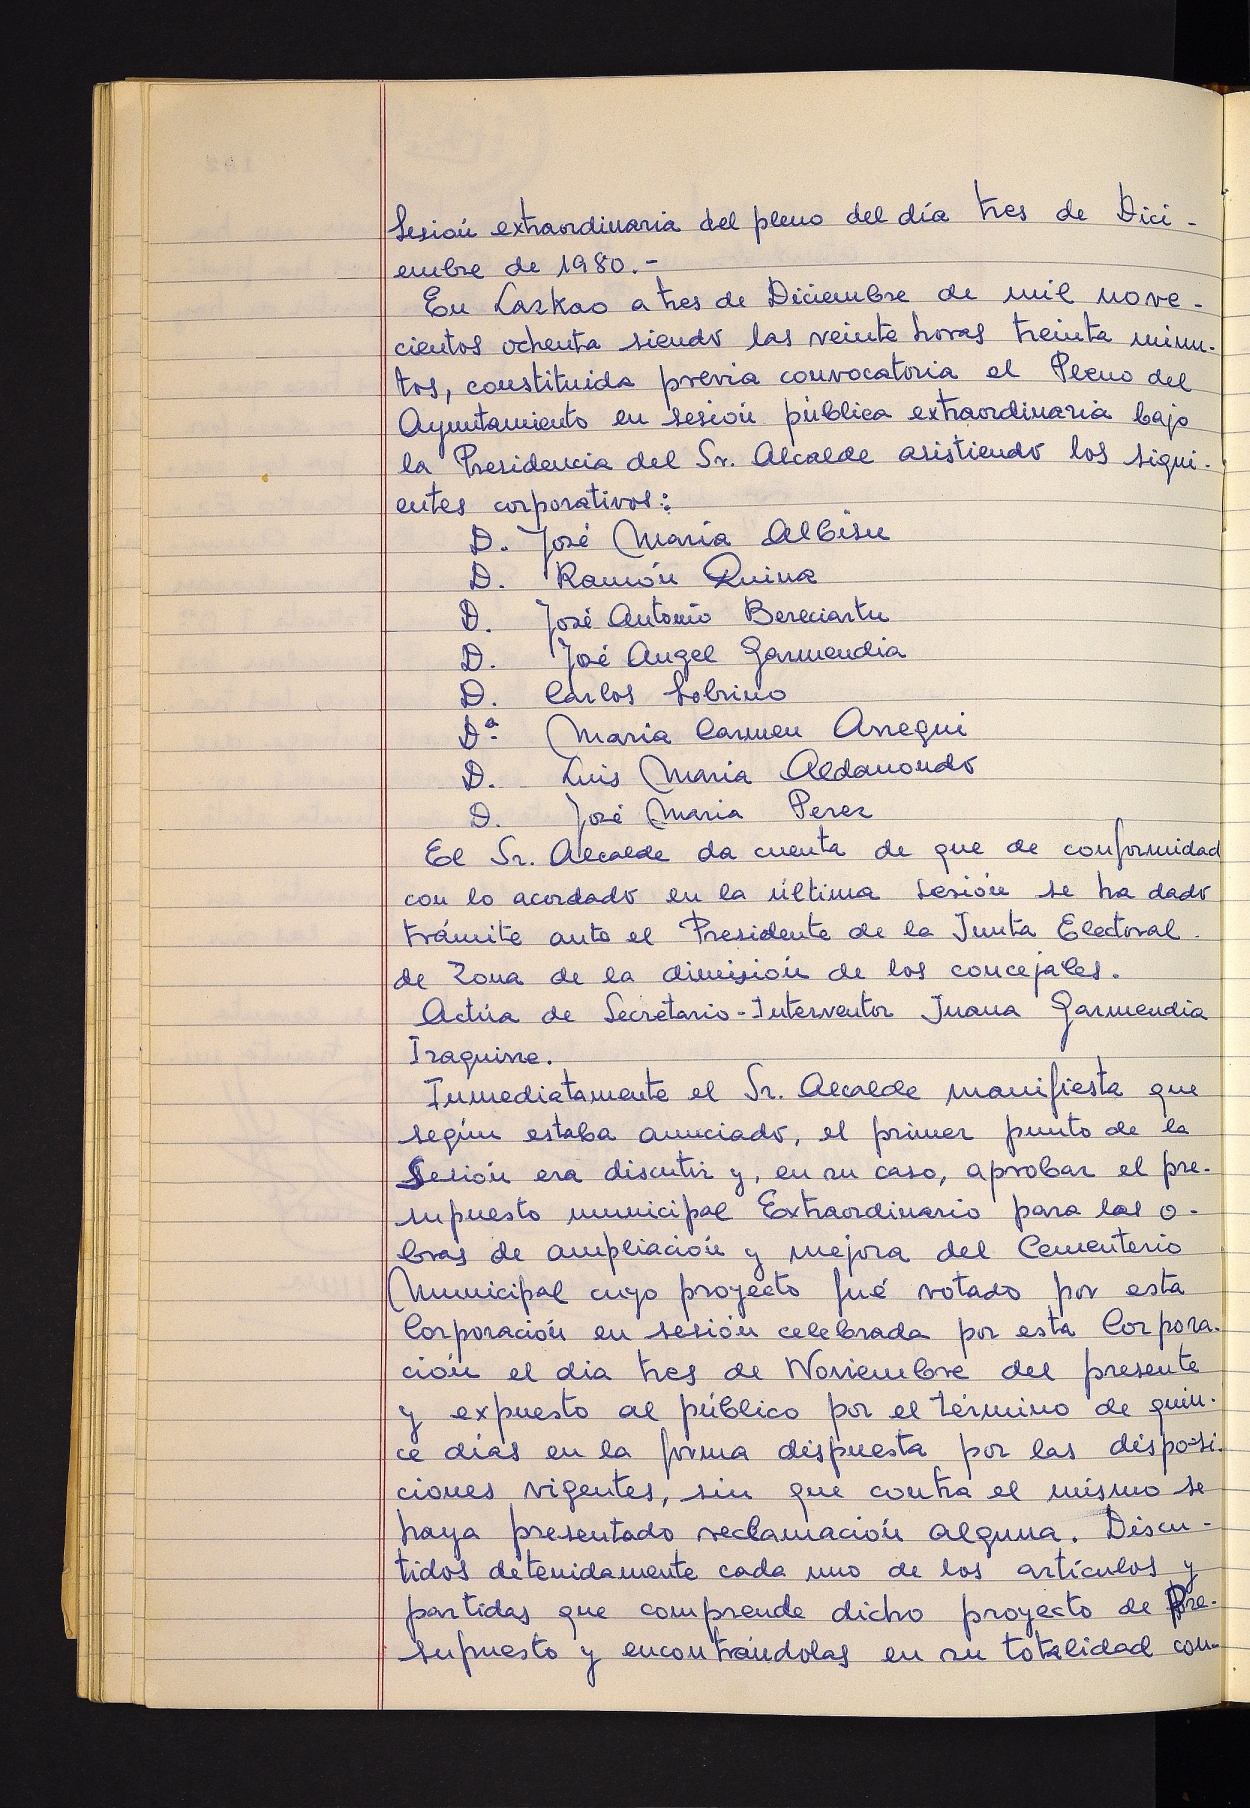 Sesión extraordinaria del pleno del día tres de Dici-
embre de 1980.-
En Lazkao a tres de Diciembre de mil nove-
cientos ochenta siendo las veinte horas treinta minu-
tos, constituida previa convocatoria el Pleno del
Ayuntamiento en sesión pública extraordinaria bajo
la Presidencia del Sr. Alcalde asistiendo los sigui-
entes corporativos:
D. José María Albisu
D. Ramón Quina
D. José Antonio Bereciartu
D. José Angel Garmendia
D. Carlos Sobrino
Dª Maria Carmen Arregui
D. Luis Maria Aldanondo
D. José Maria Perez
El Sr. Alcalde da cuenta de que de conformidad
con lo acordado en la última sesión se ha dado
trámite anto el Presidente de la Junta Electoral
de Zona de la dimisión de los concejales.
Actúa de Secretario-Interventor Juana Garmendia
Izaguirre.
Inmediatamente el Sr. Alcalde manifiesta que
según estaba anunciado, el primer punto de la
Sesión era discutir y, en su caso, aprobar el pre-
supuesto municipal Extraordinario para las o-
bras de ampliación y mejora del Cementerio
Municipal cuyo proyecto fué votado por esta
Corporación en sesión celebrada por esta Corpora-
ción el dia tres de Noviembre del presente
y expuesto al público por el término de quin-
ce días en la forma dispuesta por las disposi-
ciones vigentes, sin que contra el mismo se
haya presentado reclamación alguna. Discu-
tidos detenidamente cada uno de los artículos y
partidas que comprende dicho proyecto de Pre-
supuesto y encontrándolas en su totalidad con-